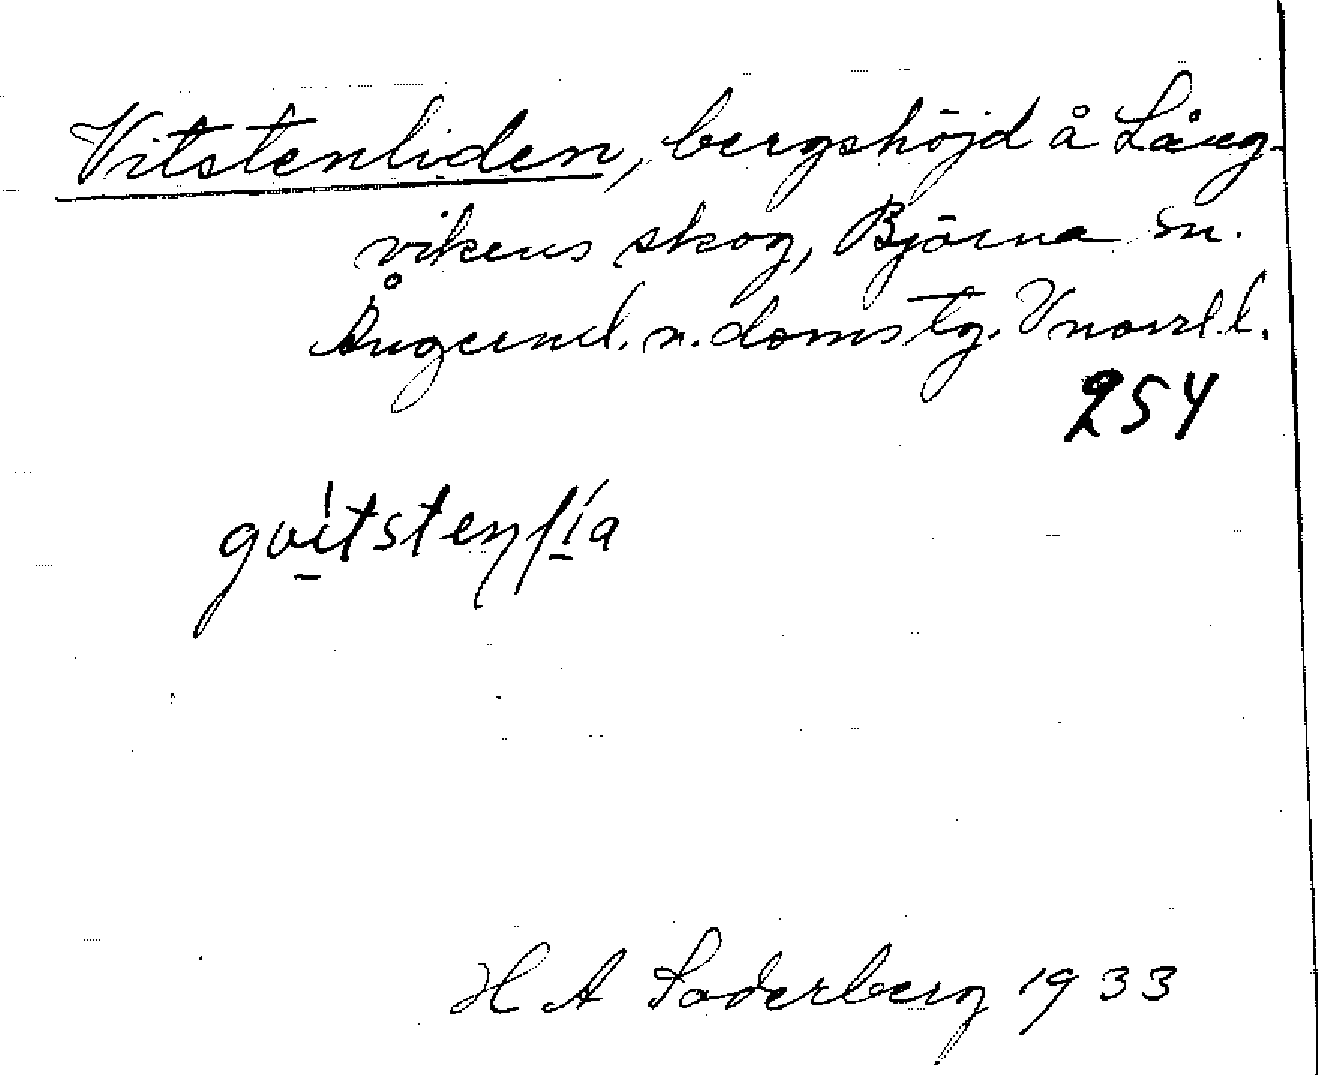 Vitstenliden, bergshöjd å Lång-
vikens skog, Björna sn.
Ångerml. n. domstg. Vnorrl. l.
254
gvitstenlia
H A Söderberg 1933